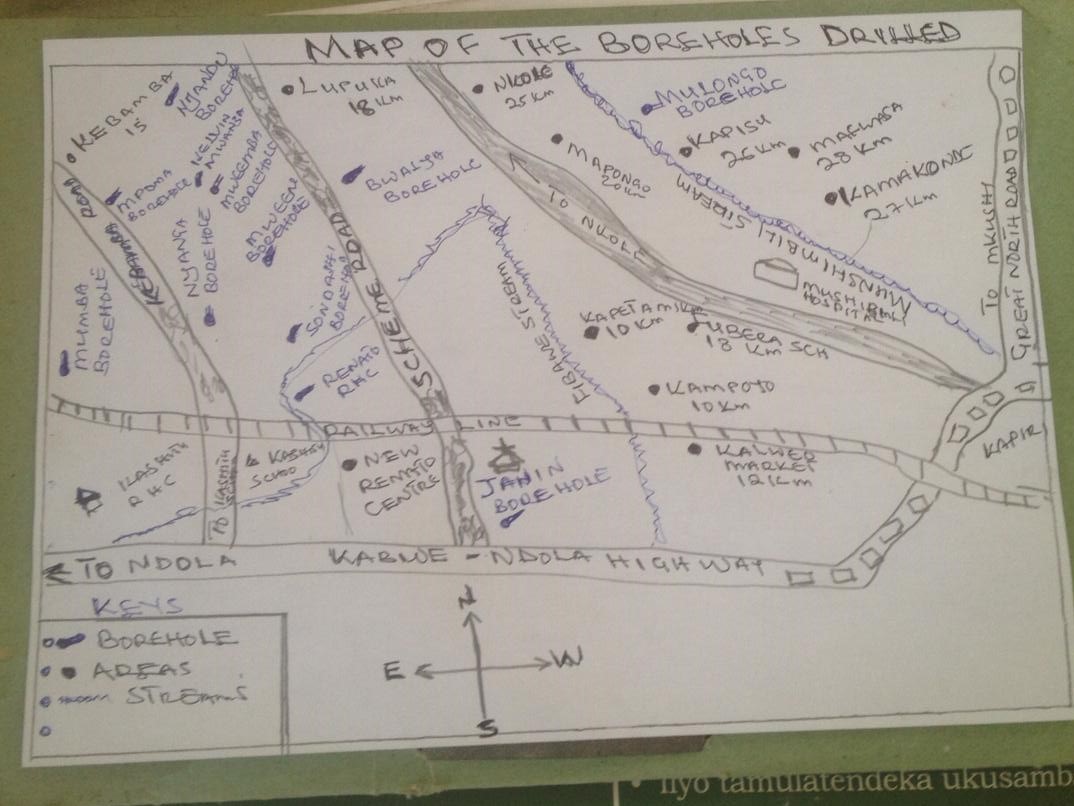 MAP OF THE BOREHOLES DRILLED
KEBAMBA
15
NJANDU
BOREHOLE
LUPUKA
18 Km
NKOLE
25 Km
MULONGO
BOREHOLE
KAPISU
26 Km
MAFWASA
28 KM
KAMAKONDE
27 Km
KELVIN
MWANSA
MPOMA
BOREHOLE
MWEEMBA
BOREHOLE
MWEEN
BOREHOLE
NYANGA
BOREHOLE
BWALYA
BOREHOLE
MAPONGO
20 Km
MUNSHIMBILI STREAM
TO NKOLE
TO MKUSHI
GREAT NORTH ROAD
ROAD
MUMBA
BOREHOLE
BOREHOLE
SCHEME ROAD
FIBANE STREAM
HOSPITAL
10 Km
LUBERA SCH
18 Km
RENATO
RHC
KAMPOTO
10 Km
RAILWAY LINE
KAPIRI
RHC
NEW
RENATO
CENTRE
JAHIN
BOREHOLE
MARKET
12 Km
TO NDOLA
KABWE - NDOLA HIGHWAY
KEYS
BOREHOLE
AREAS
STREAMS
N
E
W
S
• ilyo tamulatendeka ukusamb